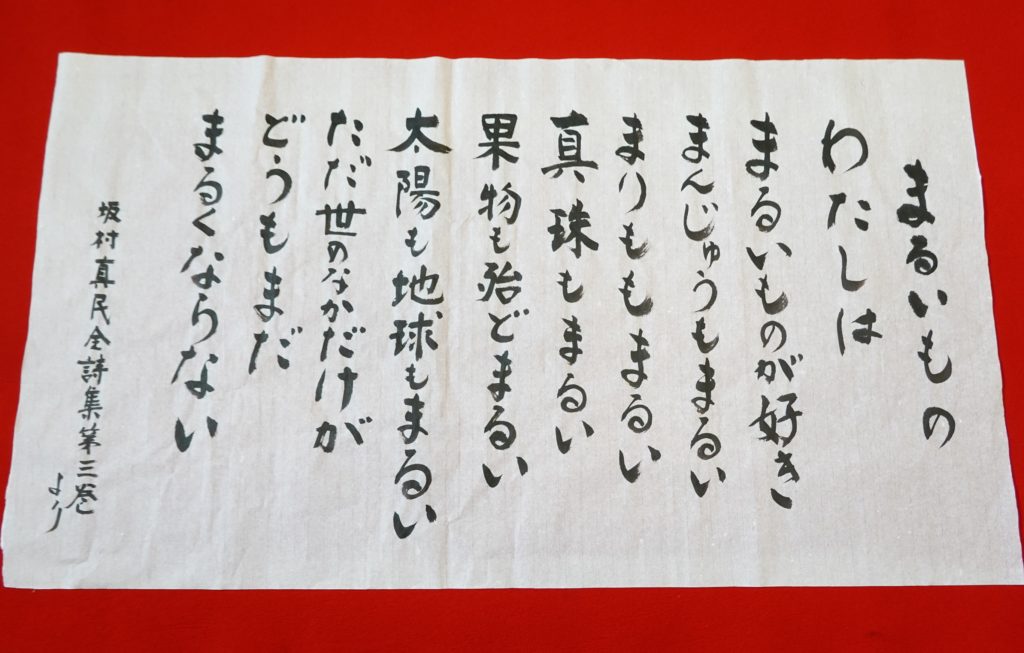 まるいもの
わたしは
まるいものが好き
まんじゅうもまるい
まりももまるい
真珠もまるい
果物も殆どまるい
太陽も地球もまるい
ただ世のなかだけが
どうもまだ
まるくならない
坂村真民全詩集第三巻
より